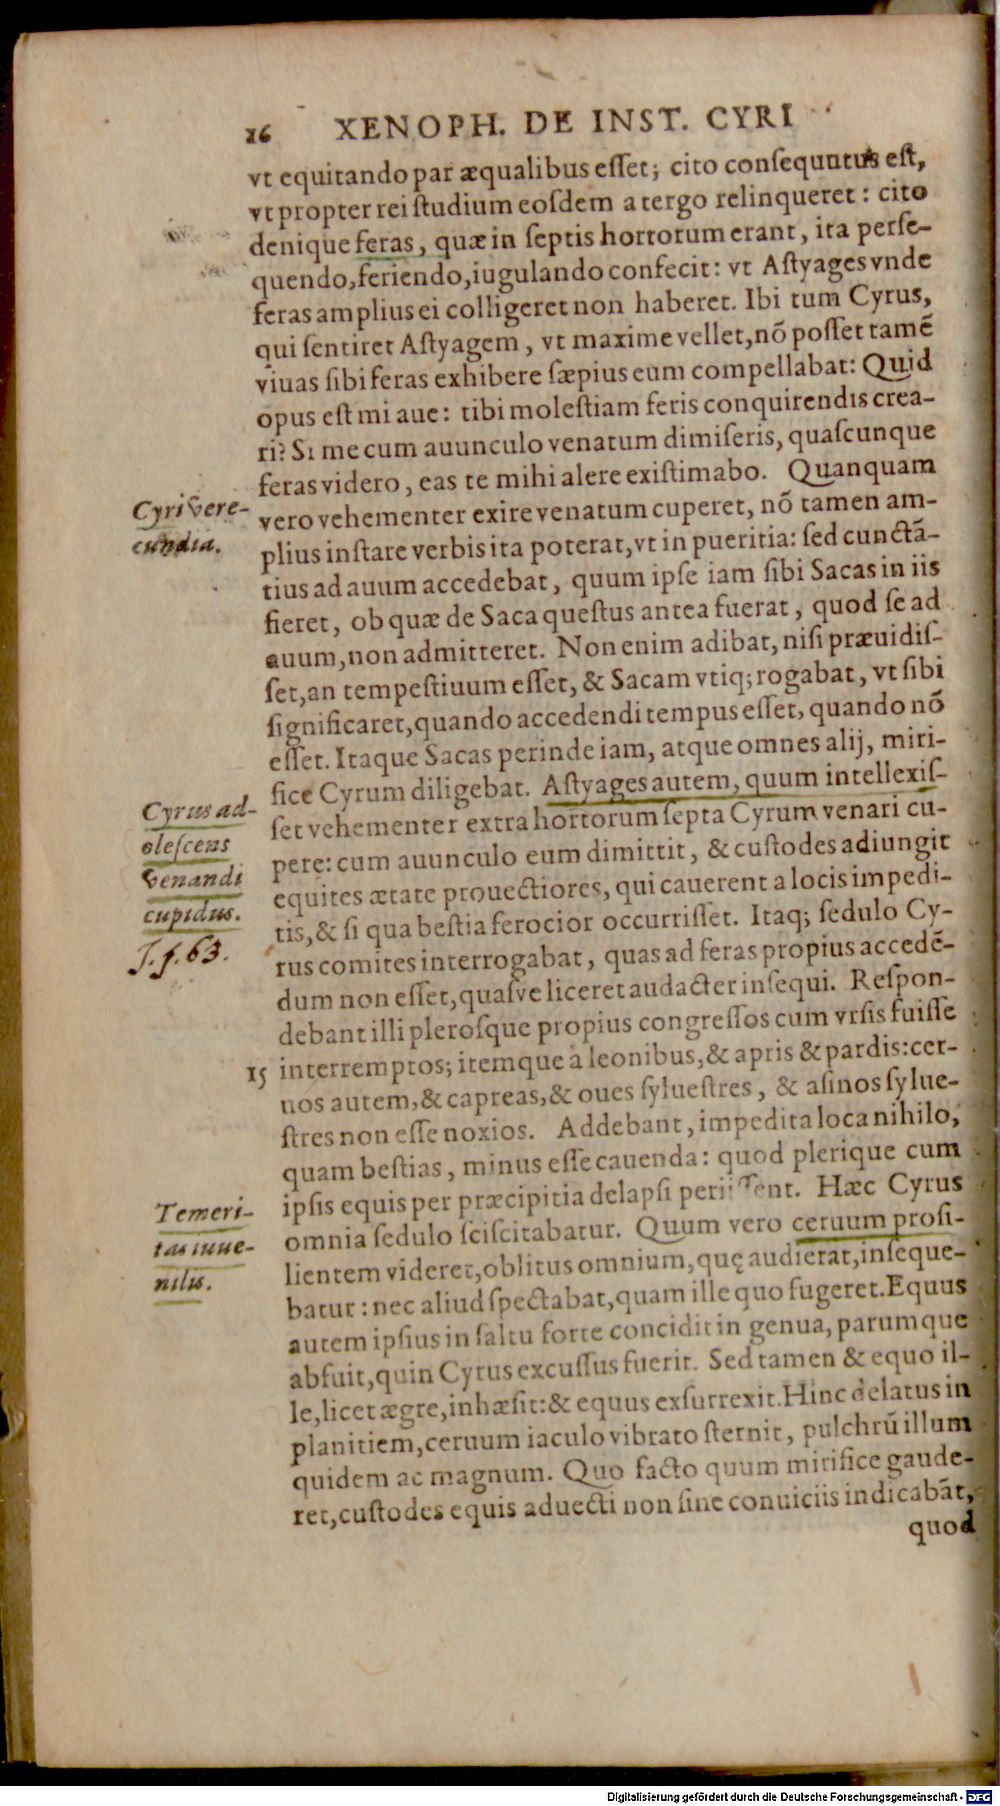 26 XENOPH. DE INST. CYRI
vt equitando par æqualibus eſſet; cito conſequutus eſt,
vt propter rei ſtudium eoſdem a tergo relinqueret: cito
denique feras, quæ in ſeptis hortorum erant, ita perſe-
quendo, feriendo, iugulando confecit: vt Aſtyages vnde
feras amplius ei colligeret non haberet. Ibi tum Cyrus,
qui ſentiret Aſtyagem, vt maxime vellet, nõ poſſet tamẽ
viuas ſibi feras exhibere ſæpius eum compellabat: Quid
opus eſt mi aue: tibi moleſtiam feris conquirendis crea-
ri? Si me cum auunculo venatum dimiſeris, quaſcunque
feras videro, eas te mihi alere exiſtimabo. Quanquam
Cyri vere-
cundia.
vero vehementer exire venatum cuperet, nõ tamen am-
plius inſtare verbis ita poterat, vt in pueritia: ſed cunctã-
tius ad auum accedebat, quum ipſe iam ſibi Sacas in iis
fieret, ob quæ de Saca queſtus antea fuerat, quod ſe ad
auum, non admitteret. Non enim adibat, niſi præuidiſ-
ſet, an tempeſtiuum eſſet, & Sacam vtiq; rogabat, vt ſibi
ſignificaret, quando accedendi tempus eſſet, quando nõ
eſſet. Itaque Sacas perinde iam, atque omnes alij, miri-
fice Cyrum diligebat. Aſtyages autem, quum intellexiſ-
Cyrus ad-
oleſcens
venandi
cupidus.
J. f. 63.
ſet vehementer extra hortorum ſepta Cyrum venari cu-
pere: cum auunculo eum dimittit, & cuſtodes adiungit
equites ætate prouectiores, qui cauerent a locis impedi-
tis, & ſi qua beſtia ferocior occurriſſet. Itaq; ſedulo Cy-
rus comites interrogabat, quas ad feras propius accedẽ-
dum non eſſet, quaſve liceret audacter inſequi. Reſpon-
debant illi pleroſque propius congreſſos cum vrſis fuiſſe
15 interremptos; itemque à leonibus, & apris & pardis: cer-
uos autem, & capreas, & oues ſylueſtres, & aſinos ſylue-
ſtres non eſſe noxios. Addebant, impedita loca nihilo,
quam beſtias, minus eſſe cauenda: quod plerique cum
Temeri-
tas iuue-
nilis.
ipſis equis per præcipitia delapſi periiſſent. Hæc Cyrus
omnia ſedulo ſciſcitabatur. Quum vero ceruum proſi-
lientem videret, oblitus omnium, quę audierat, inſeque-
batur: nec aliud ſpectabat, quam ille quo fugeret. Equus
autem ipſius in ſaltu forte concidit in genua, parumque
abfuit, quin Cyrus excuſſus fuerit. Sed tamen & equo il-
le, licet ægre, inhæſit: & equus exſurrexit. Hinc delatus in
planitiem, ceruum iaculo vibrato ſternit, pulchrũ illum
quidem ac magnum. Quo facto quum mirifice gaude-
ret, cuſtodes equis aduecti non ſine conuiciis indicabãt,
quod
Digitalisierung gefördert durch die Deutsche Forschungsgemeinschaft - DFG